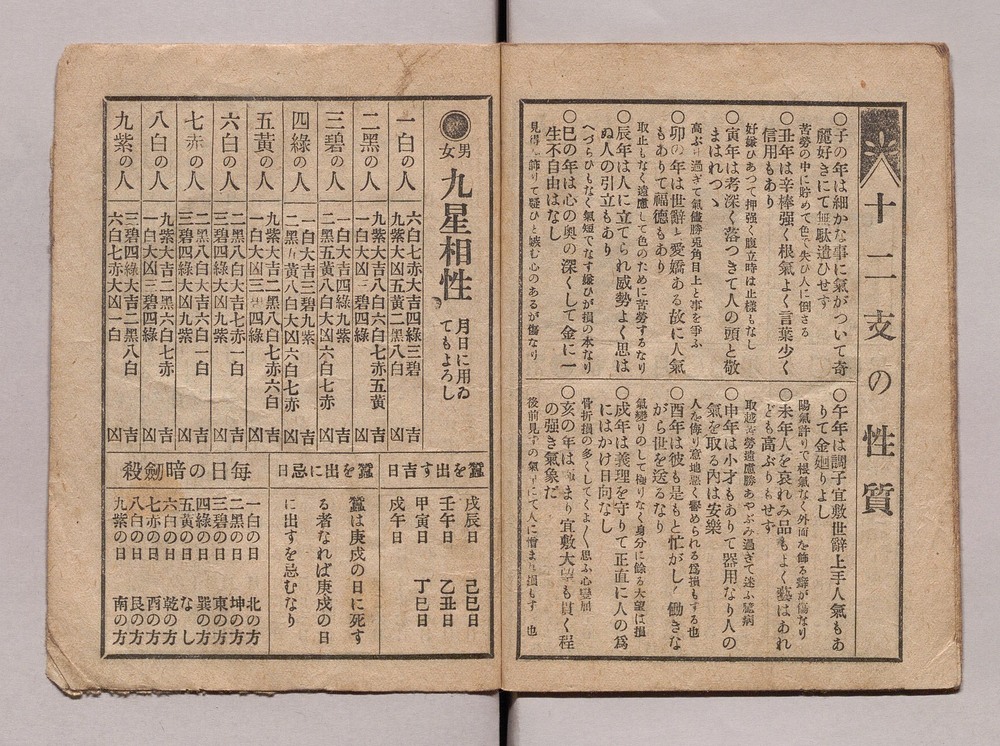 十二支の性質
○子の年は細かな事に氣がついて奇
麗好きにて無駄遣ひせず
苦勞の中に貯めて色で失ひ人に倒さる
○丑年は辛棒强く根氣よく言葉少く
信用もあり
好嫌ひあつて押强く腹立時は止樣もなし
○寅年は考深く落つきて人の頭と敬
まはれつゝ
高ぶり過ぎて氣儘勝兎角目上と事を爭ふ
○卯の年は世辭と愛嬌ある故に人氣
もありて福德もあり
取止もなく遠慮して色のために苦勞するなり
○辰年は人に立てられ威勢よく思は
ぬ人の引立もあり
へつらひもなく氣短でなす嫌ひが損の本なり
○巳の年は心の奧の深くして金に一
生不自由はなし
見得を飾りて疑ひと嫉む心のあるが傷なり
○午年は調子宜敷世辭上手人氣もあ
りて金廻りよし
陽氣許りで根氣なく外面を飾る癖が傷なり
○未年人を哀れみ品もよく藝はあれ
ども高ぶりもせず
取越苦勞遠慮勝あやぶみ過ぎて迷ふ鬱病
○申年は小才もありて器用なり人の
氣を取る內は安樂
人を侮り意地惡く譽められる爲損もする也
○酉年は彼も是もと忙がしく働きな
がら世を送るなり
氣變りのして極りなく身分に餘る大望は損
○戌年は義理を守りて正直に人の爲
にはかけ日向なし
骨折損の多くしてくよく思ふ心變屈
○亥の年は極まり宜敷大望も貫く程
の强き氣象だ
後前見ずの氣早にて人に憎まれ損もする也
男女 九星相性 月日に用ゐてもよろし
一白の人 六白七赤大吉四綠三碧 吉
九紫大凶五黃二黑八白 凶
二黑の人 九紫大吉八白六白七赤五黃 吉
一白大凶三碧四綠 凶
三碧の人 一白大吉四綠九紫 吉
二黑五黃八白大凶六白七赤 凶
四綠の人 一白大吉三碧九紫 吉
二黑五黃八白大凶六白七赤 凶
五黃の人 九紫大吉二黑八白七赤六白 吉
一白大凶三碧四綠 凶
六白の人 二黑八白大吉七赤一白 吉
三碧四綠大凶九紫 凶
七赤の人 二黑八白大吉六白一白 吉
三碧四綠大凶九紫 凶
八白の人 九紫大吉二黑六白七赤 吉
一白大凶三碧四綠 凶
九紫の人 三碧四綠大吉二黑八白 吉
六白七赤大凶一白 凶
蠶を出す吉日
戊辰日 己巳日
壬午日 乙丑日
甲寅日 丁巳日
戊午日
蠶を出に忌日
蠶は庚戌の日に死す
る者なれば庚戌の日
に出すを忌むなり
每日の暗劍殺
一白の日 北の方
二黑の日 坤の方
三碧の日 東の方
四綠の日 巽の方
五黃の日 なし
六白の日 乾の方
七赤の日 西の方
八白の日 艮の方
九紫の日 南の方